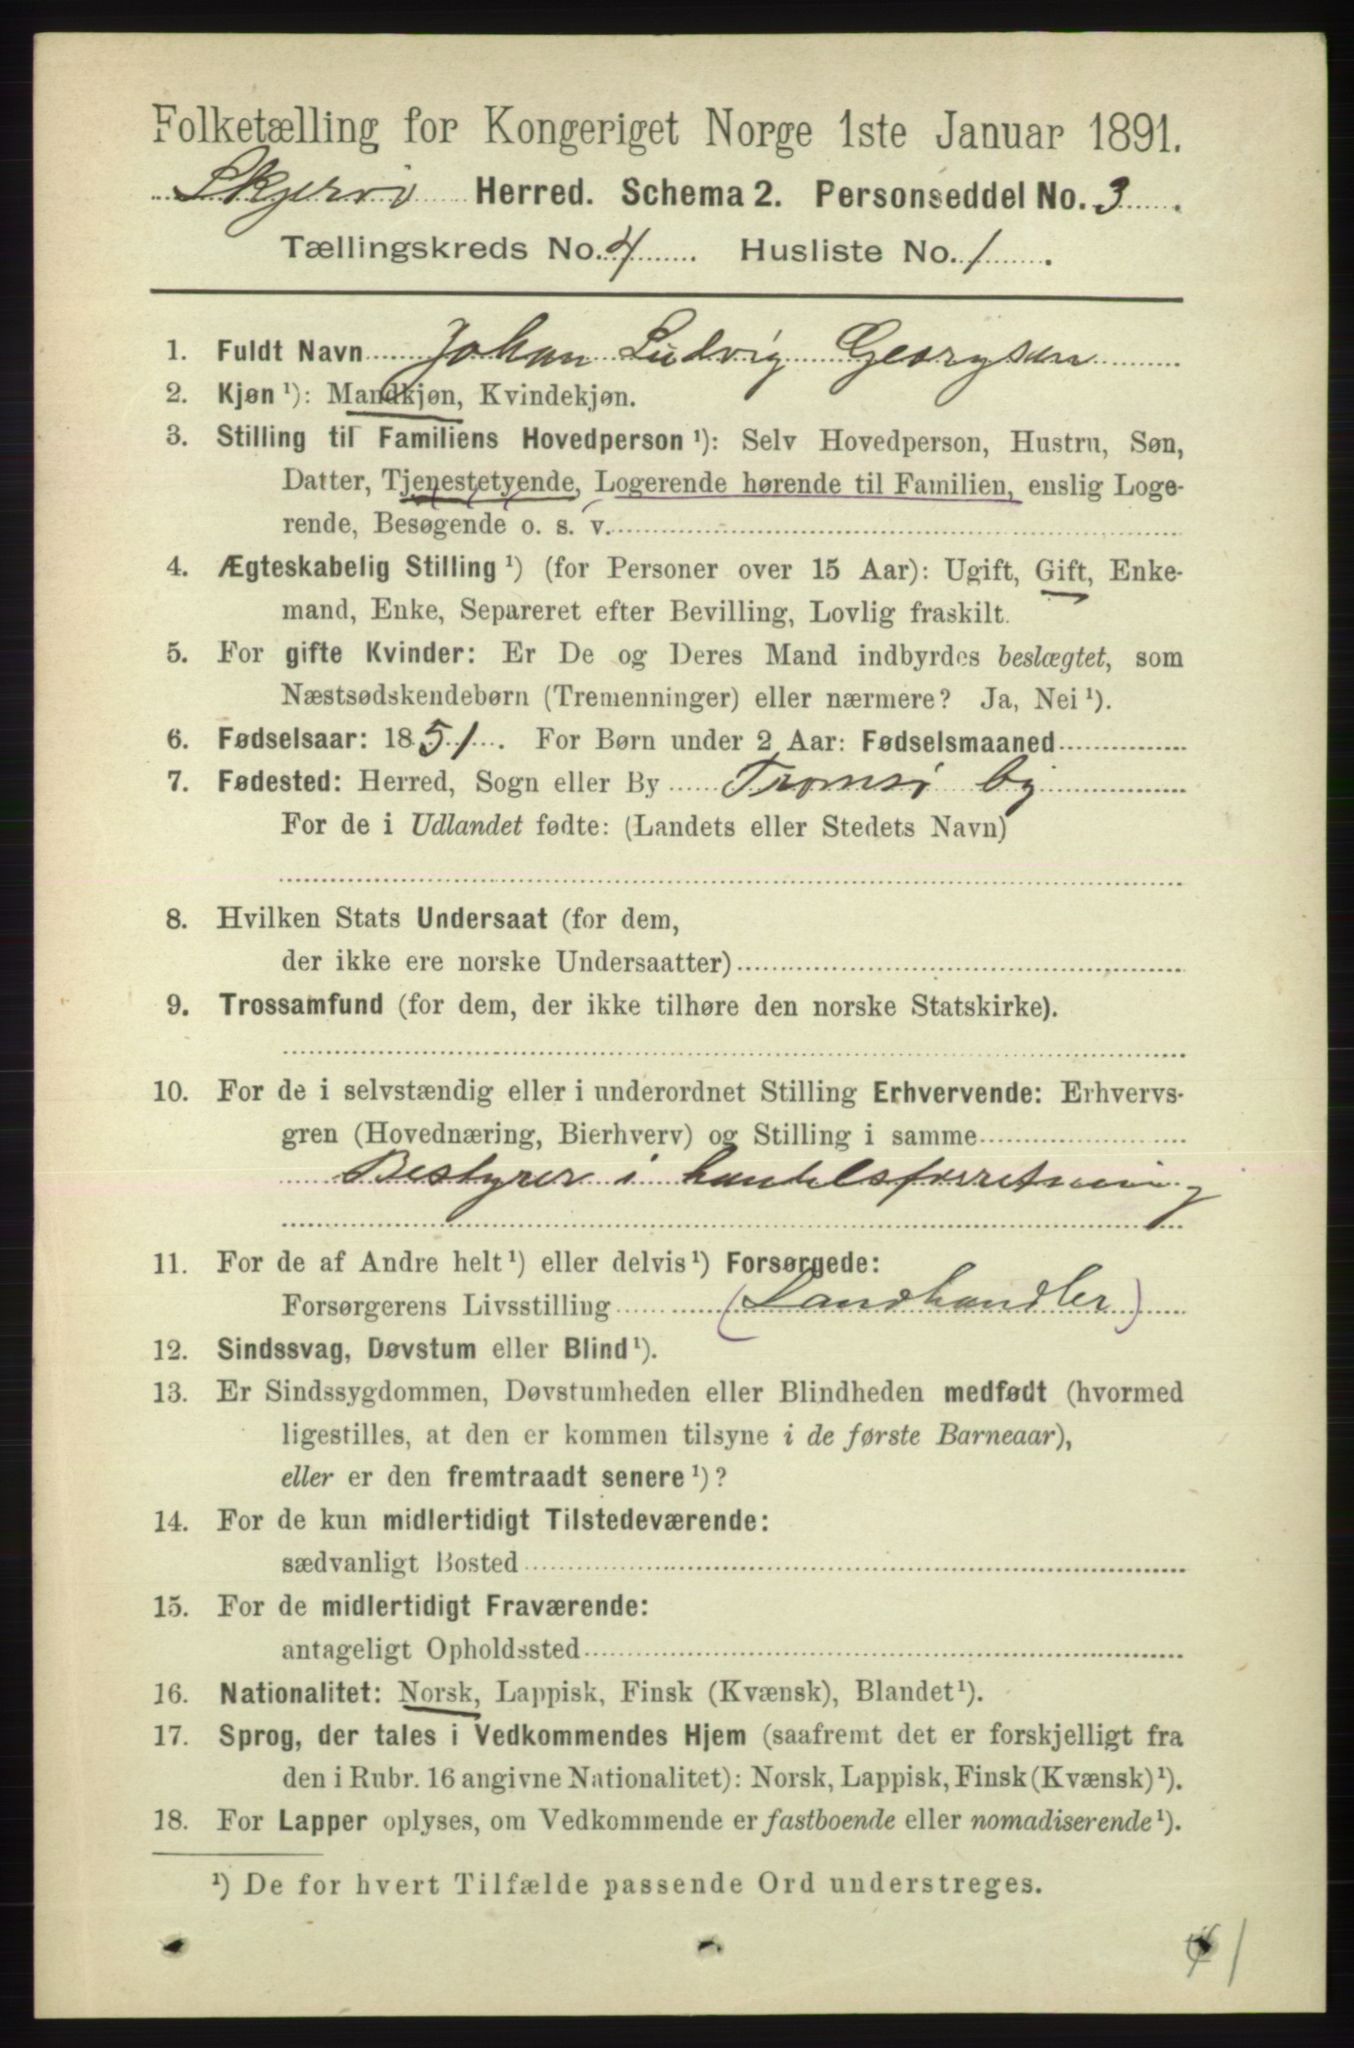 Folketælling for Kongeriget Norge 1ste Januar 1891.
Skjervö Herred. Schema 2. Personseddel No. 3.
Tællingskreds No. 4. Husliste No. 1.
1. Fuldt Navn Johan Ludvig Georgsen
2. Kjøn ¹): Mandkjøn, Kvindekjøn.
3. Stilling til Familiens Hovedperson ¹): Selv Hovedperson, Hustru, Søn,
Datter, Tjenestetyende, Logerende hørende til Familien, enslig Loge-
rende, Besøgende o. s. v.
4. Ægteskabelig Stilling ¹) (for Personer over 15 Aar): Ugift, Gift, Enke-
mand, Enke, Separeret efter Bevilling, Lovlig fraskilt.
5. For gifte Kvinder: Er De og Deres Mand indbyrdes beslægtet, som
Næstsødskendebørn (Tremenninger) eller nærmere? Ja, Nei ¹).
6. Fødselsaar: 1851. For Børn under 2 Aar: Fødselsmaaned
7. Fødested: Herred, Sogn eller By Tromsö by
For de i Udlandet fødte: (Landets eller Stedets Navn)
8. Hvilken Stats Undersaat (for dem,
der ikke ere norske Undersaatter)
9. Trossamfund (for dem, der ikke tilhøre den norske Statskirke).
10. For de i selvstændig eller i underordnet Stilling Erhvervende: Erhvervs-
gren (Hovednæring, Bierhverv) og Stilling i samme
Bestyrer i handelsforretning
11. For de af Andre helt ¹) eller delvis ¹) Forsørgede:
Forsørgerens Livsstilling (Landhandler)
12. Sindssvag, Døvstum eller Blind ¹).
13. Er Sindssygdommen, Døvstumheden eller Blindheden medfødt (hvormed
ligestilles, at den er kommen tilsyne i de første Barneaar),
eller er den fremtraadt senere ¹)?
14. For de kun midlertidigt Tilstedeværende:
sædvanligt Bosted
15. For de midlertidigt Fraværende:
antageligt Opholdssted
16. Nationalitet: Norsk, Lappisk, Finsk (Kvænsk), Blandet ¹).
17. Sprog, der tales i Vedkommendes Hjem (saafremt det er forskjelligt fra
den i Rubr. 16 angivne Nationalitet): Norsk, Lappisk, Finsk (Kvænsk) ¹).
18. For Lapper oplyses, om Vedkommende er fastboende eller nomadiserende ¹).
¹) De for hvert Tilfælde passende Ord understreges.